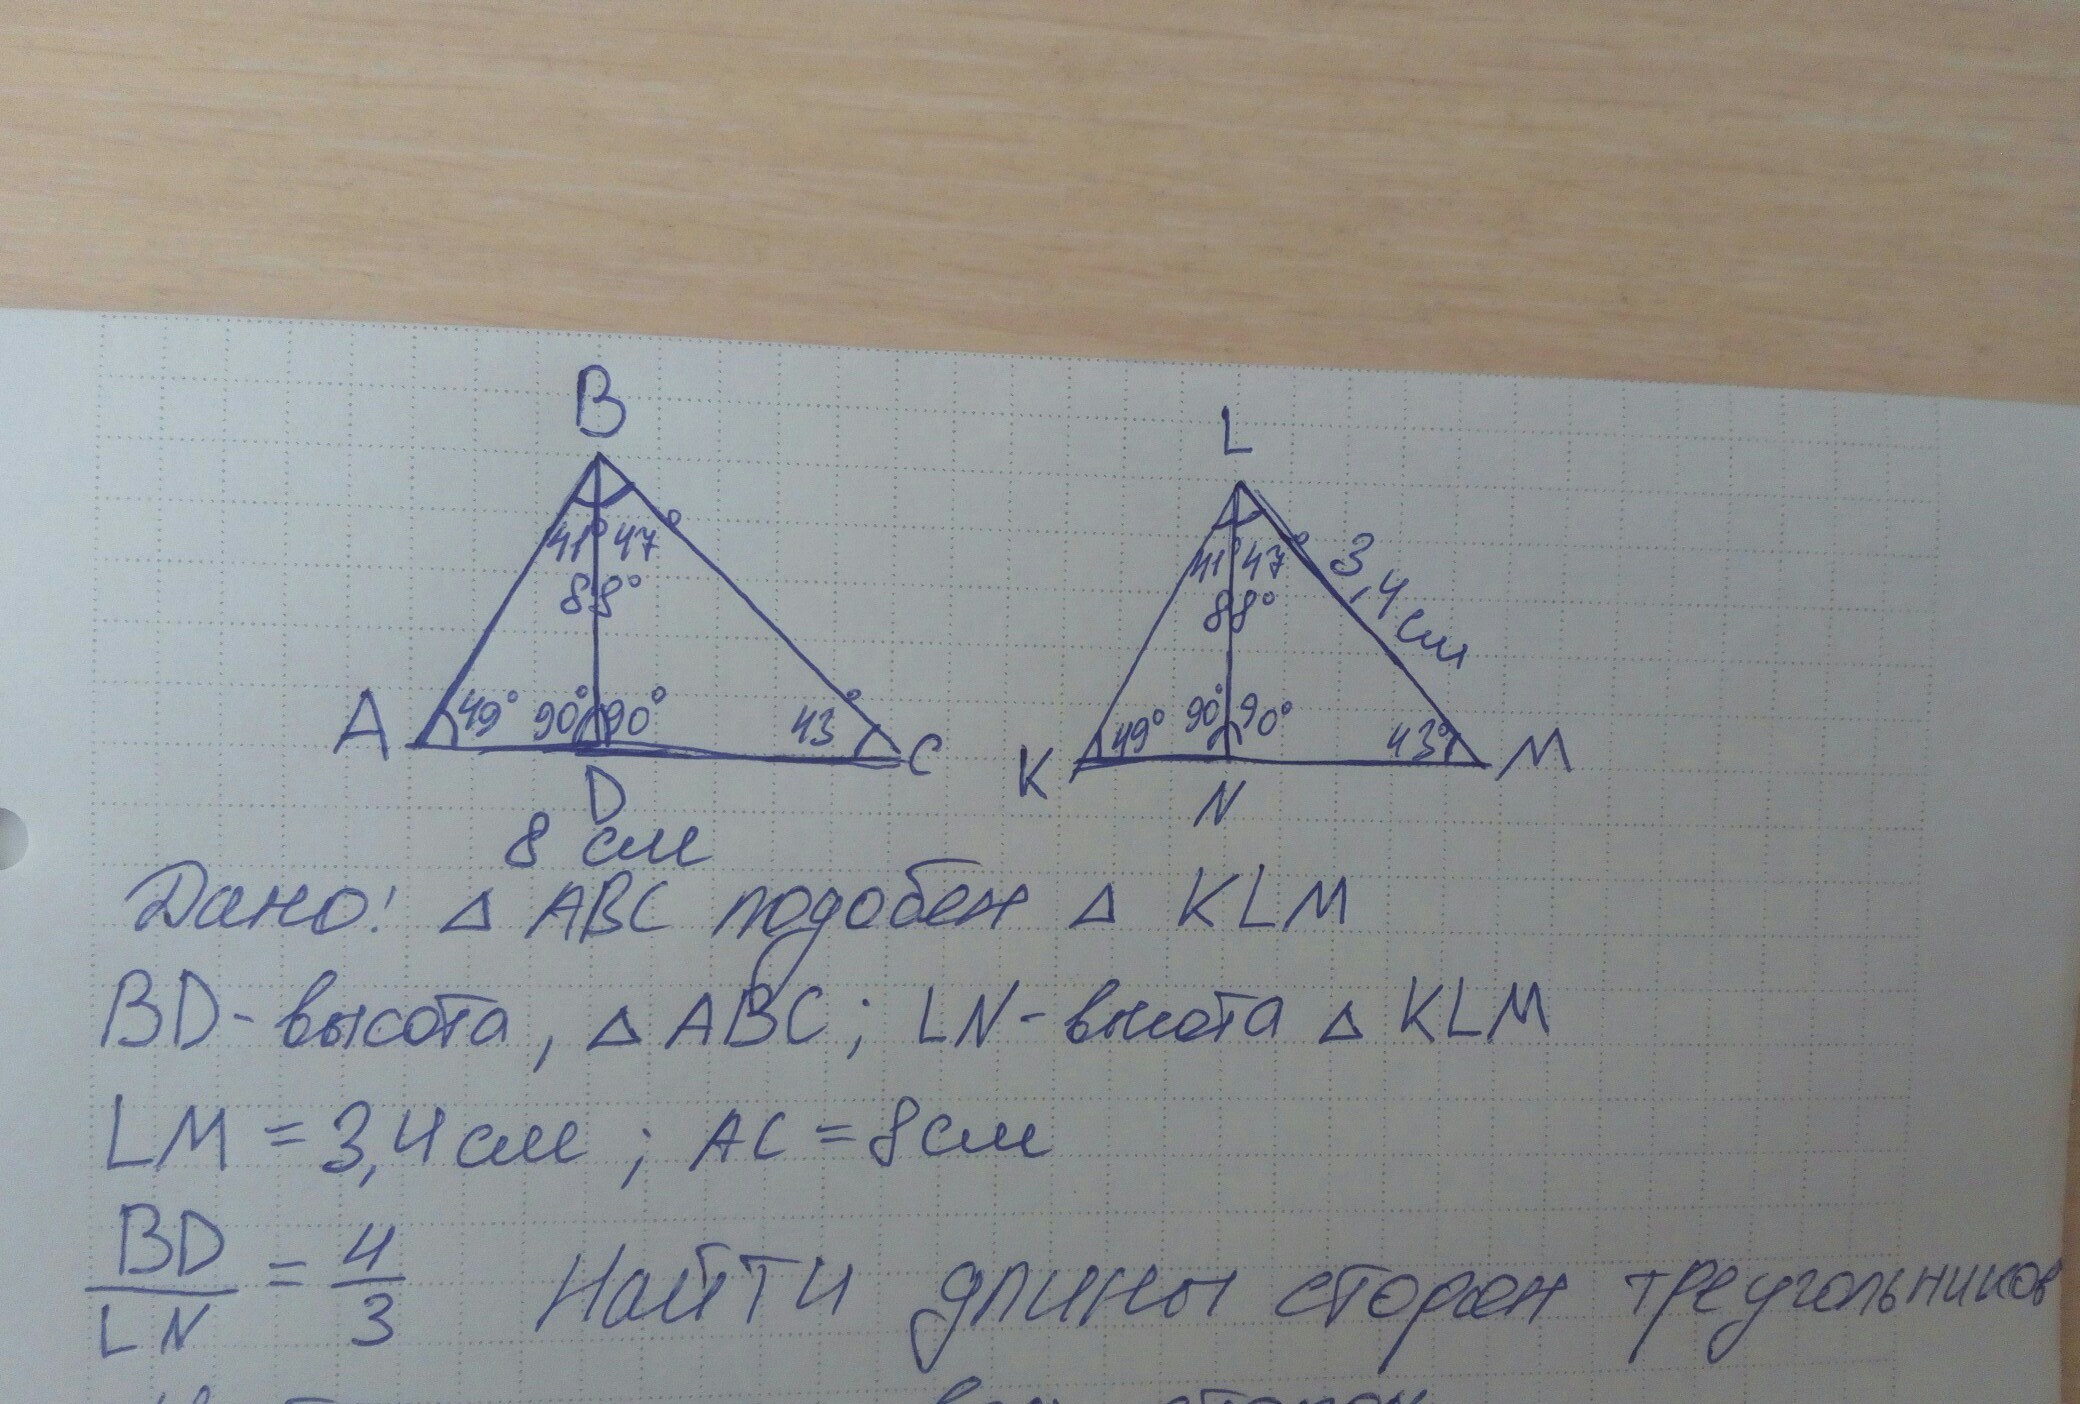 B L
41° 47° 41° 47°
3,4 см
88° 88°
A 49° 90° 90° 43° C K 49° 90° 90° 43° M
D N
8 см
Дано: △ ABC подобен △ KLM
BD - высота, △ ABC; LN - высота △ KLM
LM = 3,4 см; AC = 8 см
BD/LN = 4/3 Найти длины сторон треугольников
сторон